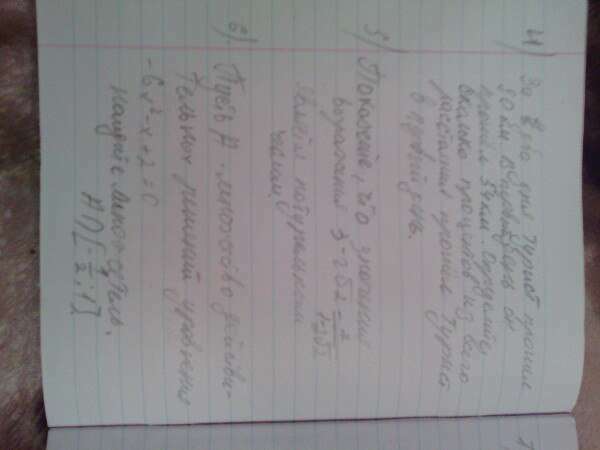 4) За два дня турист прошёл
50 км. В первый день он
прошёл 34 км. Определите
сколько процентов из всего
расстояния прошёл турист
в первый день.
5) Покажите, что значение
выражения 3-2√2 = 2
является натуральным
числом.
6) Пусть A - множество действи-
тельных решений уравнения
-6x²-x+2=0
найдите множитель.
A∩[-1/2; 1]